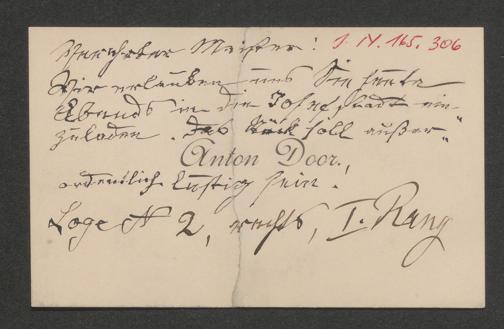 Verehrter Meister! I. N. 165.306
Wir erlauben uns Sie heute
Abends in die Josefstadt ein-
zuladen. Das Stück soll außer-
Anton Door.
ordentlich lustig sein.
Loge No 2, rechts, I. Rang